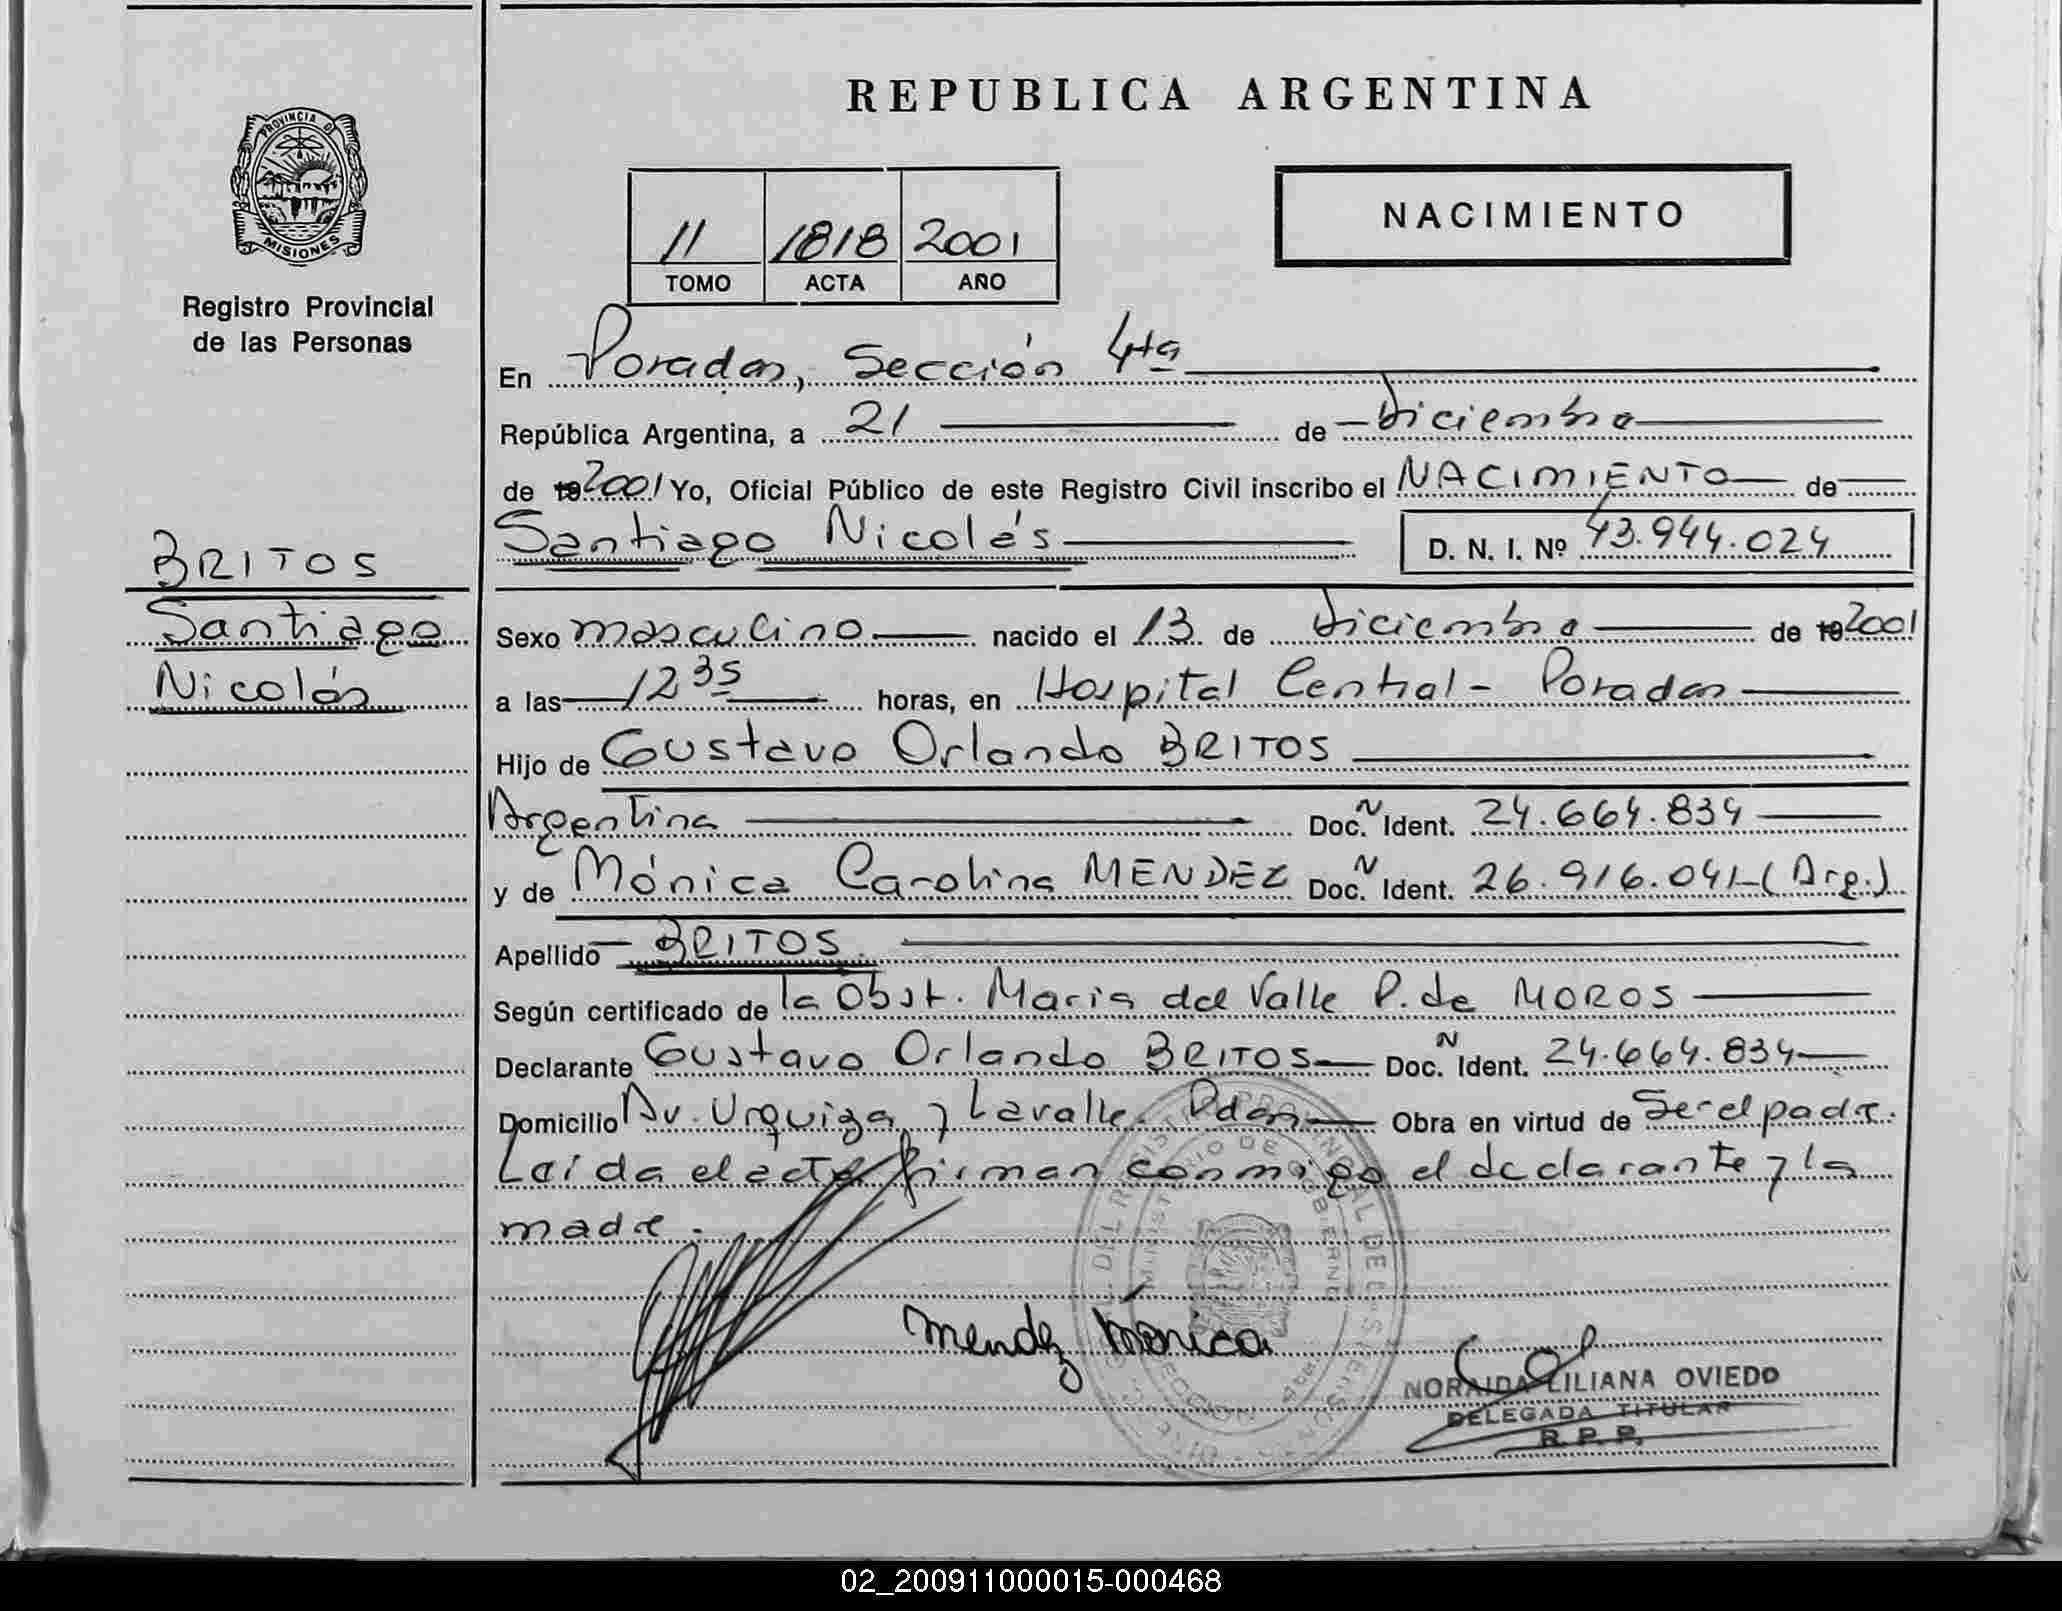 REPUBLICA ARGENTINA
PROVINCIA DE
MISIONES
Registro Provincial
de las Personas
NACIMIENTO
11 1818 2001
TOMO ACTA AÑO
En Posadas, Sección 4ta
República Argentina, a 21 de Diciembre
de 19 2001 Yo, Oficial Público de este Registro Civil inscribo el NACIMIENTO de
Santiago Nicolás D. N. I. Nº 43.944.024
BRITOS
Santiago
Nicolás
Sexo masculino nacido el 13 de Diciembre de 19 2001
a las 12 35 horas, en Hospital Central - Posadas
Hijo de Gustavo Orlando BRITOS
Argentina Doc. N Ident. 24.664.834
y de Mónica Carolina MENDEZ Doc. N Ident. 26.916.041 (Arg.)
Apellido BRITOS.
Según certificado de la Obst. Maria del Valle P. de MOROS
Declarante Gustavo Orlando BRITOS Doc. N Ident. 24.664.834
Domicilio Av. Urquiza y Lavalle. Pdas Obra en virtud de Ser el padre.
Leída el acta firman conmigo el declarante y la
madre.
Mendez Mónica
NORAIDA LILIANA OVIEDO
DELEGADA TITULAR
R. P. P.
02_200911000015-000468